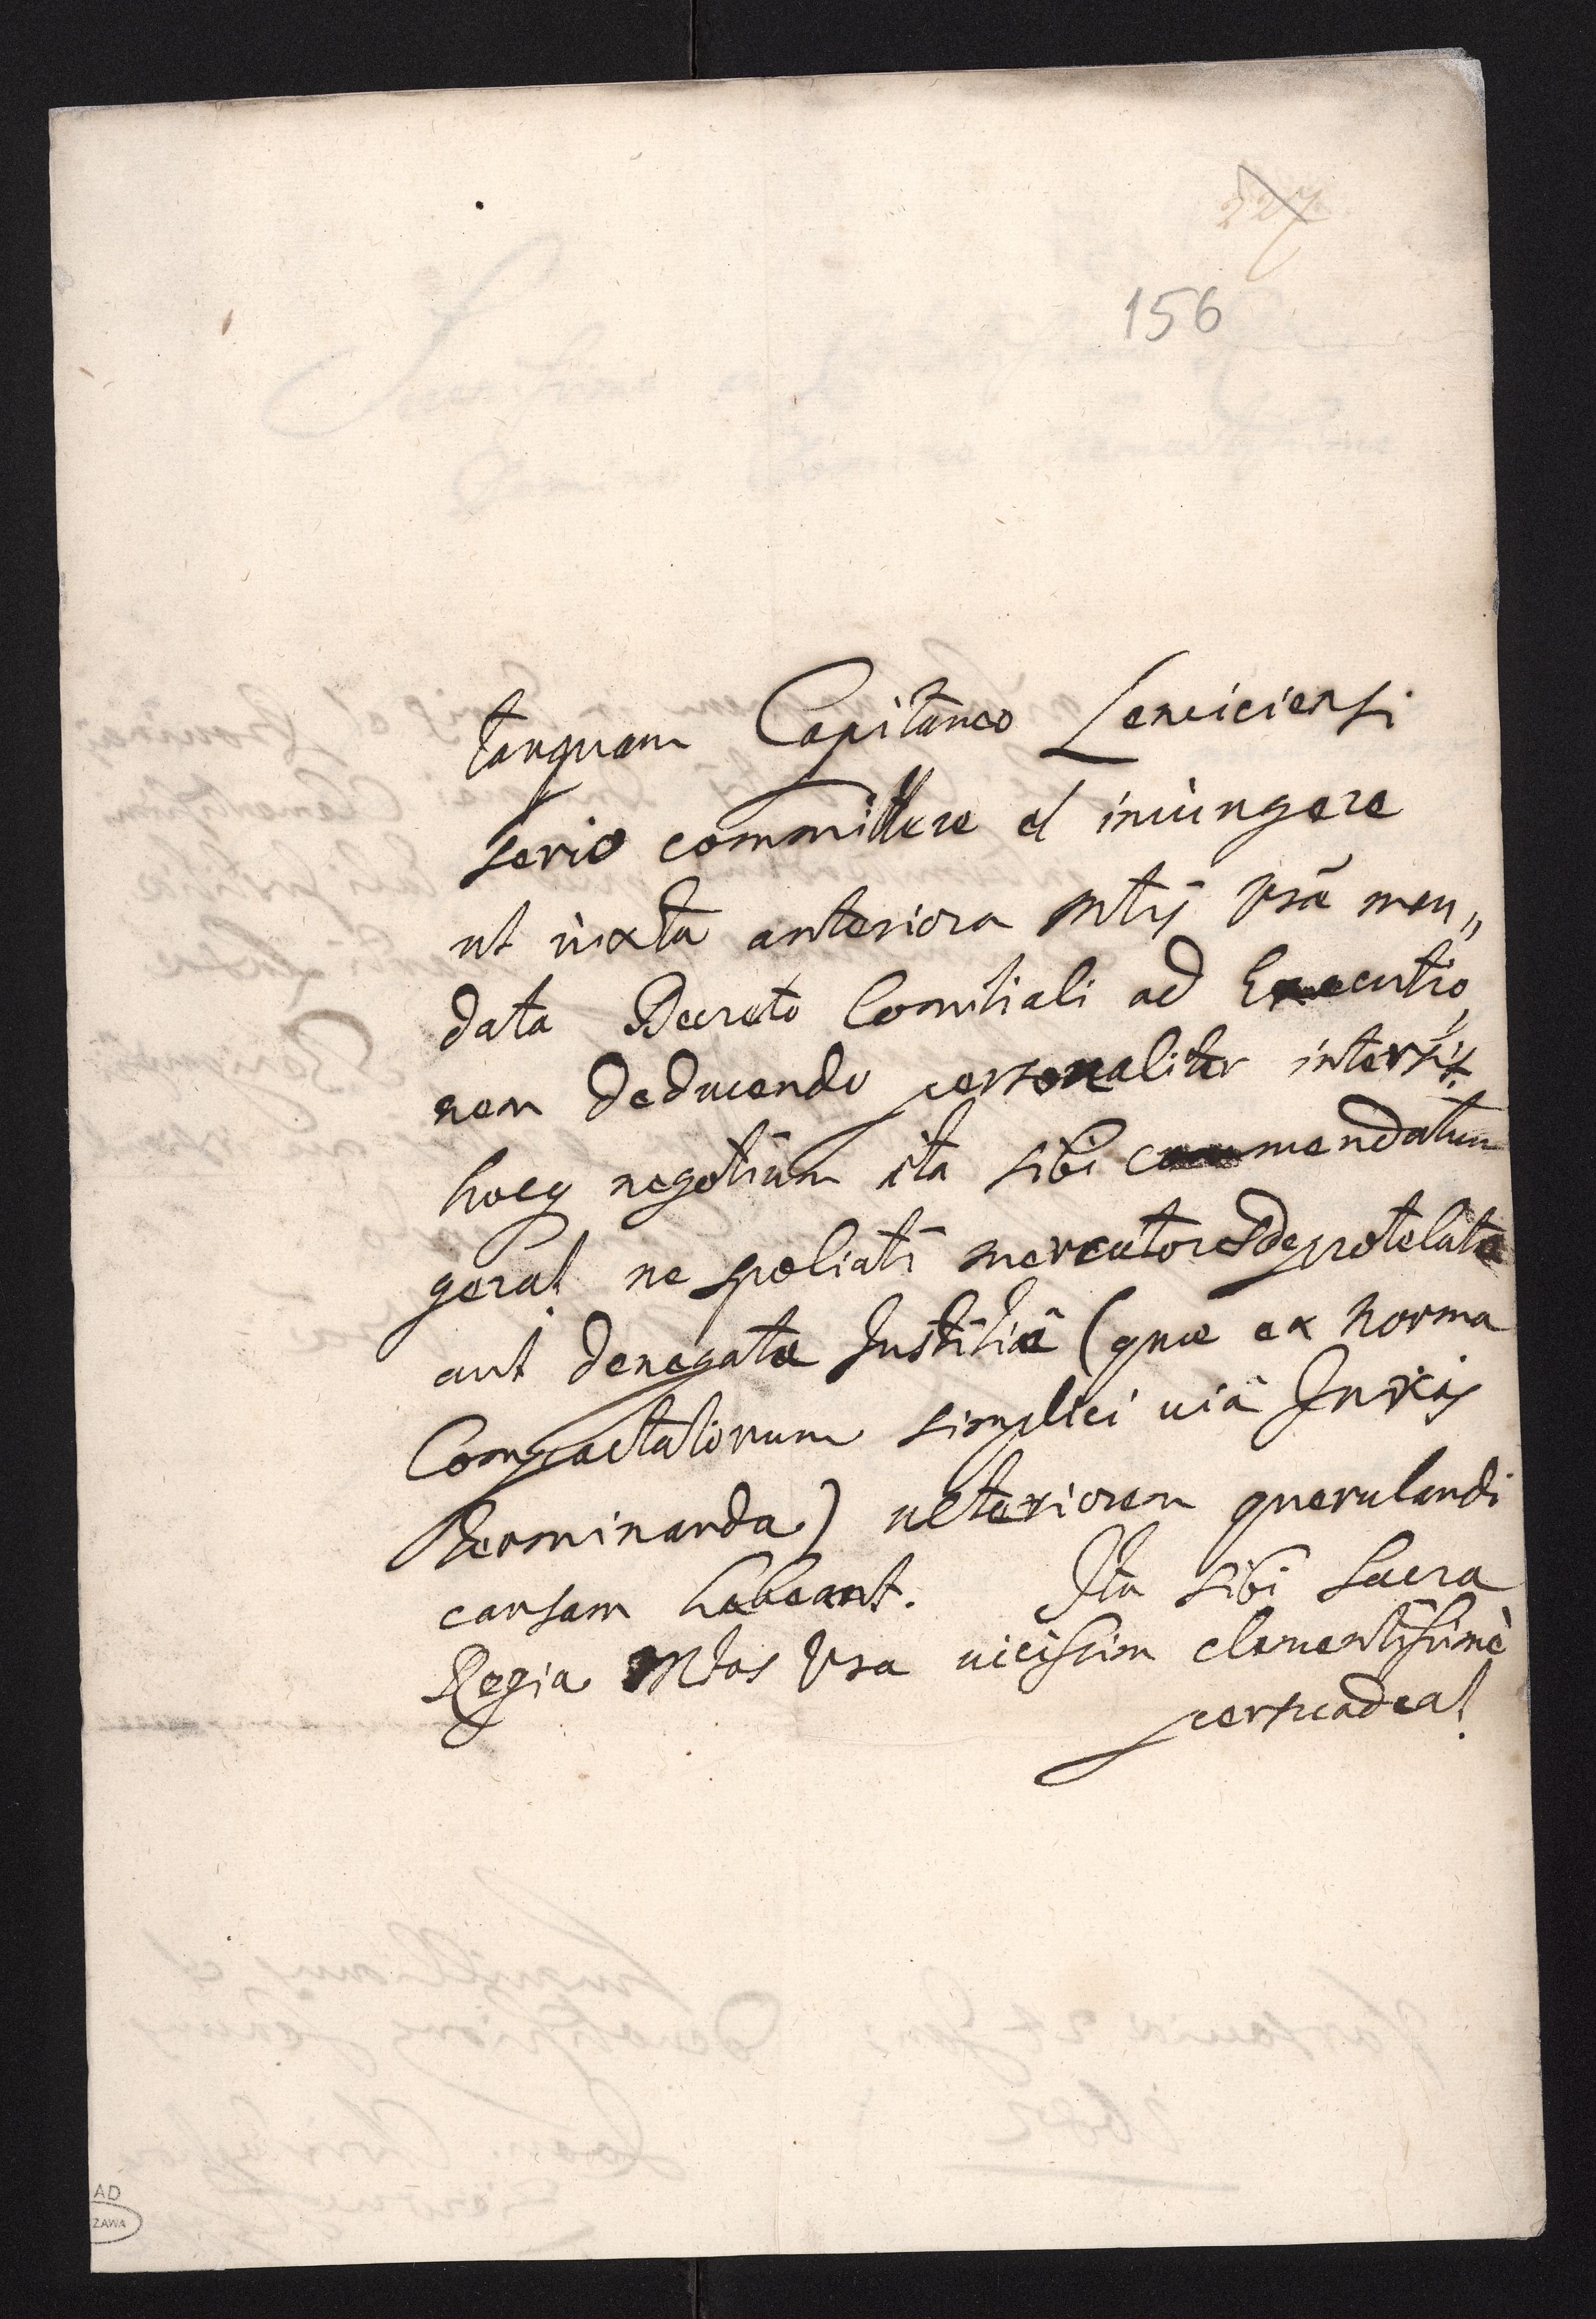 227
156
tanquam Capitaneo Lenciciensi
serio committere et iniungere
ut iuxta anteriora Mtis Vrae man„
data Decreto Comitiali ad Executio„
nem deducendo personaliter intersit
hocq negotium ita sibi commendatum
gerat ne spoliati mercatores de protelata
aut denegata Justitiâ (quae ex norma
Compactatorum simplici uiâ Juris
terminanda) ulteriorem querulandi
causam habeant. Ita sibi Sacra
Regia Mtas Vra uicissim clementissimè
persuadeat
AD
ZAWA